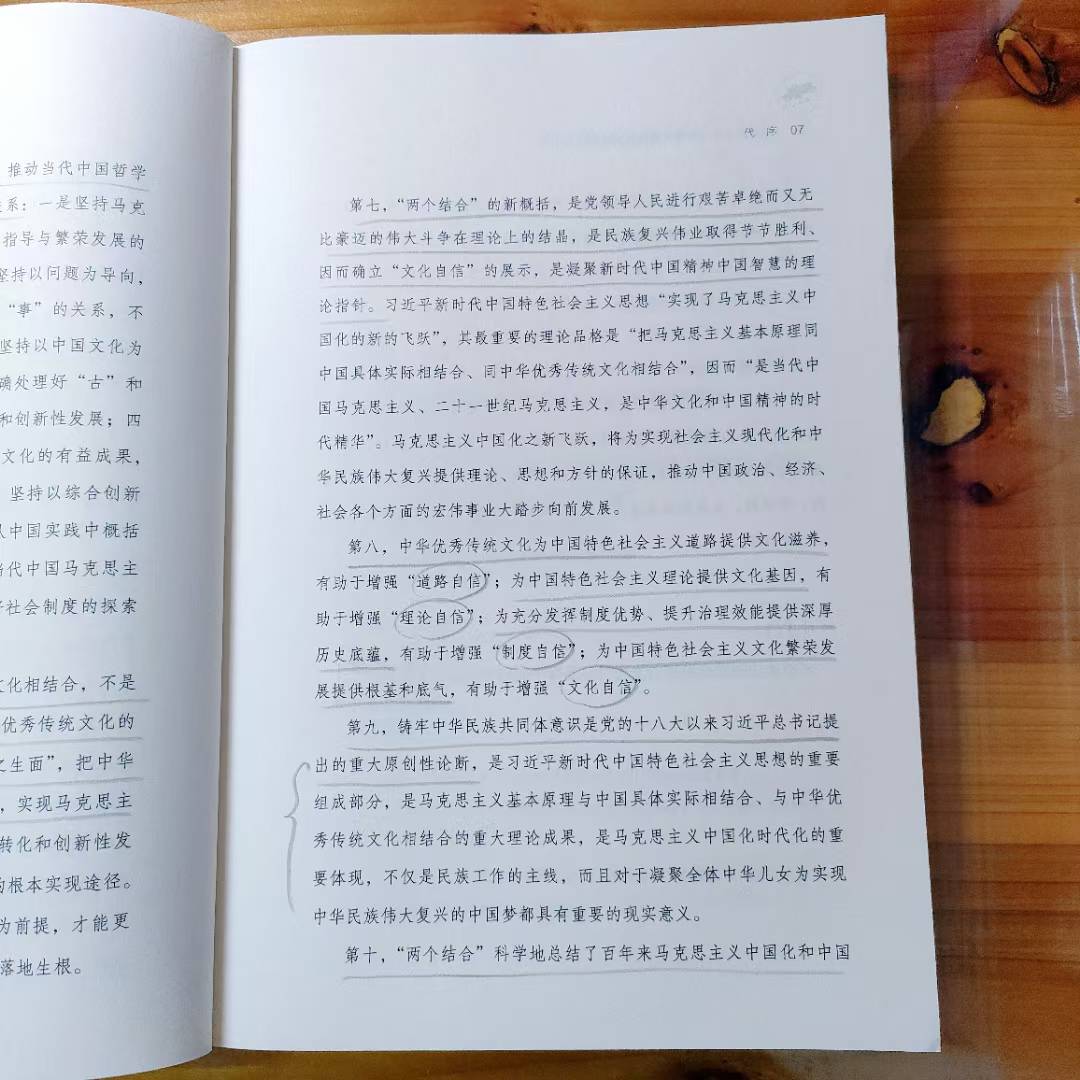 推动当代中国哲学
系：一是坚持马克
指导与繁荣发展的
坚持以问题为导向，
“事”的关系，不
坚持以中国文化为
确处理好“古”和
和创新性发展；四
文化的有益成果，
坚持以综合创新
从中国实践中概括
当代中国马克思主
社会制度的探索
文化相结合，不是
优秀传统文化的
之生面”，把中华
，实现马克思主
转化和创新性发
的根本实现途径。
为前提，才能更
落地生根。
代序 07
第七，“两个结合”的新概括，是党领导人民进行艰苦卓绝而又无
比豪迈的伟大斗争在理论上的结晶，是民族复兴伟业取得节节胜利、
因而确立“文化自信”的展示，是凝聚新时代中国精神中国智慧的理
论指针。习近平新时代中国特色社会主义思想“实现了马克思主义中
国化的新的飞跃”，其最重要的理论品格是“把马克思主义基本原理同
中国具体实际相结合、同中华优秀传统文化相结合”，因而“是当代中
国马克思主义、二十一世纪马克思主义，是中华文化和中国精神的时
代精华”。马克思主义中国化之新飞跃，将为实现社会主义现代化和中
华民族伟大复兴提供理论、思想和方针的保证，推动中国政治、经济、
社会各个方面的宏伟事业大踏步向前发展。
第八，中华优秀传统文化为中国特色社会主义道路提供文化滋养，
有助于增强“道路自信”；为中国特色社会主义理论提供文化基因，有
助于增强“理论自信”；为充分发挥制度优势、提升治理效能提供深厚
历史底蕴，有助于增强“制度自信”；为中国特色社会主义文化繁荣发
展提供根基和底气，有助于增强“文化自信”。
第九，铸牢中华民族共同体意识是党的十八大以来习近平总书记提
出的重大原创性论断，是习近平新时代中国特色社会主义思想的重要
组成部分，是马克思主义基本原理与中国具体实际相结合、与中华优
秀传统文化相结合的重大理论成果，是马克思主义中国化时代化的重
要体现，不仅是民族工作的主线，而且对于凝聚全体中华儿女为实现
中华民族伟大复兴的中国梦都具有重要的现实意义。
第十，“两个结合”科学地总结了百年来马克思主义中国化和中国